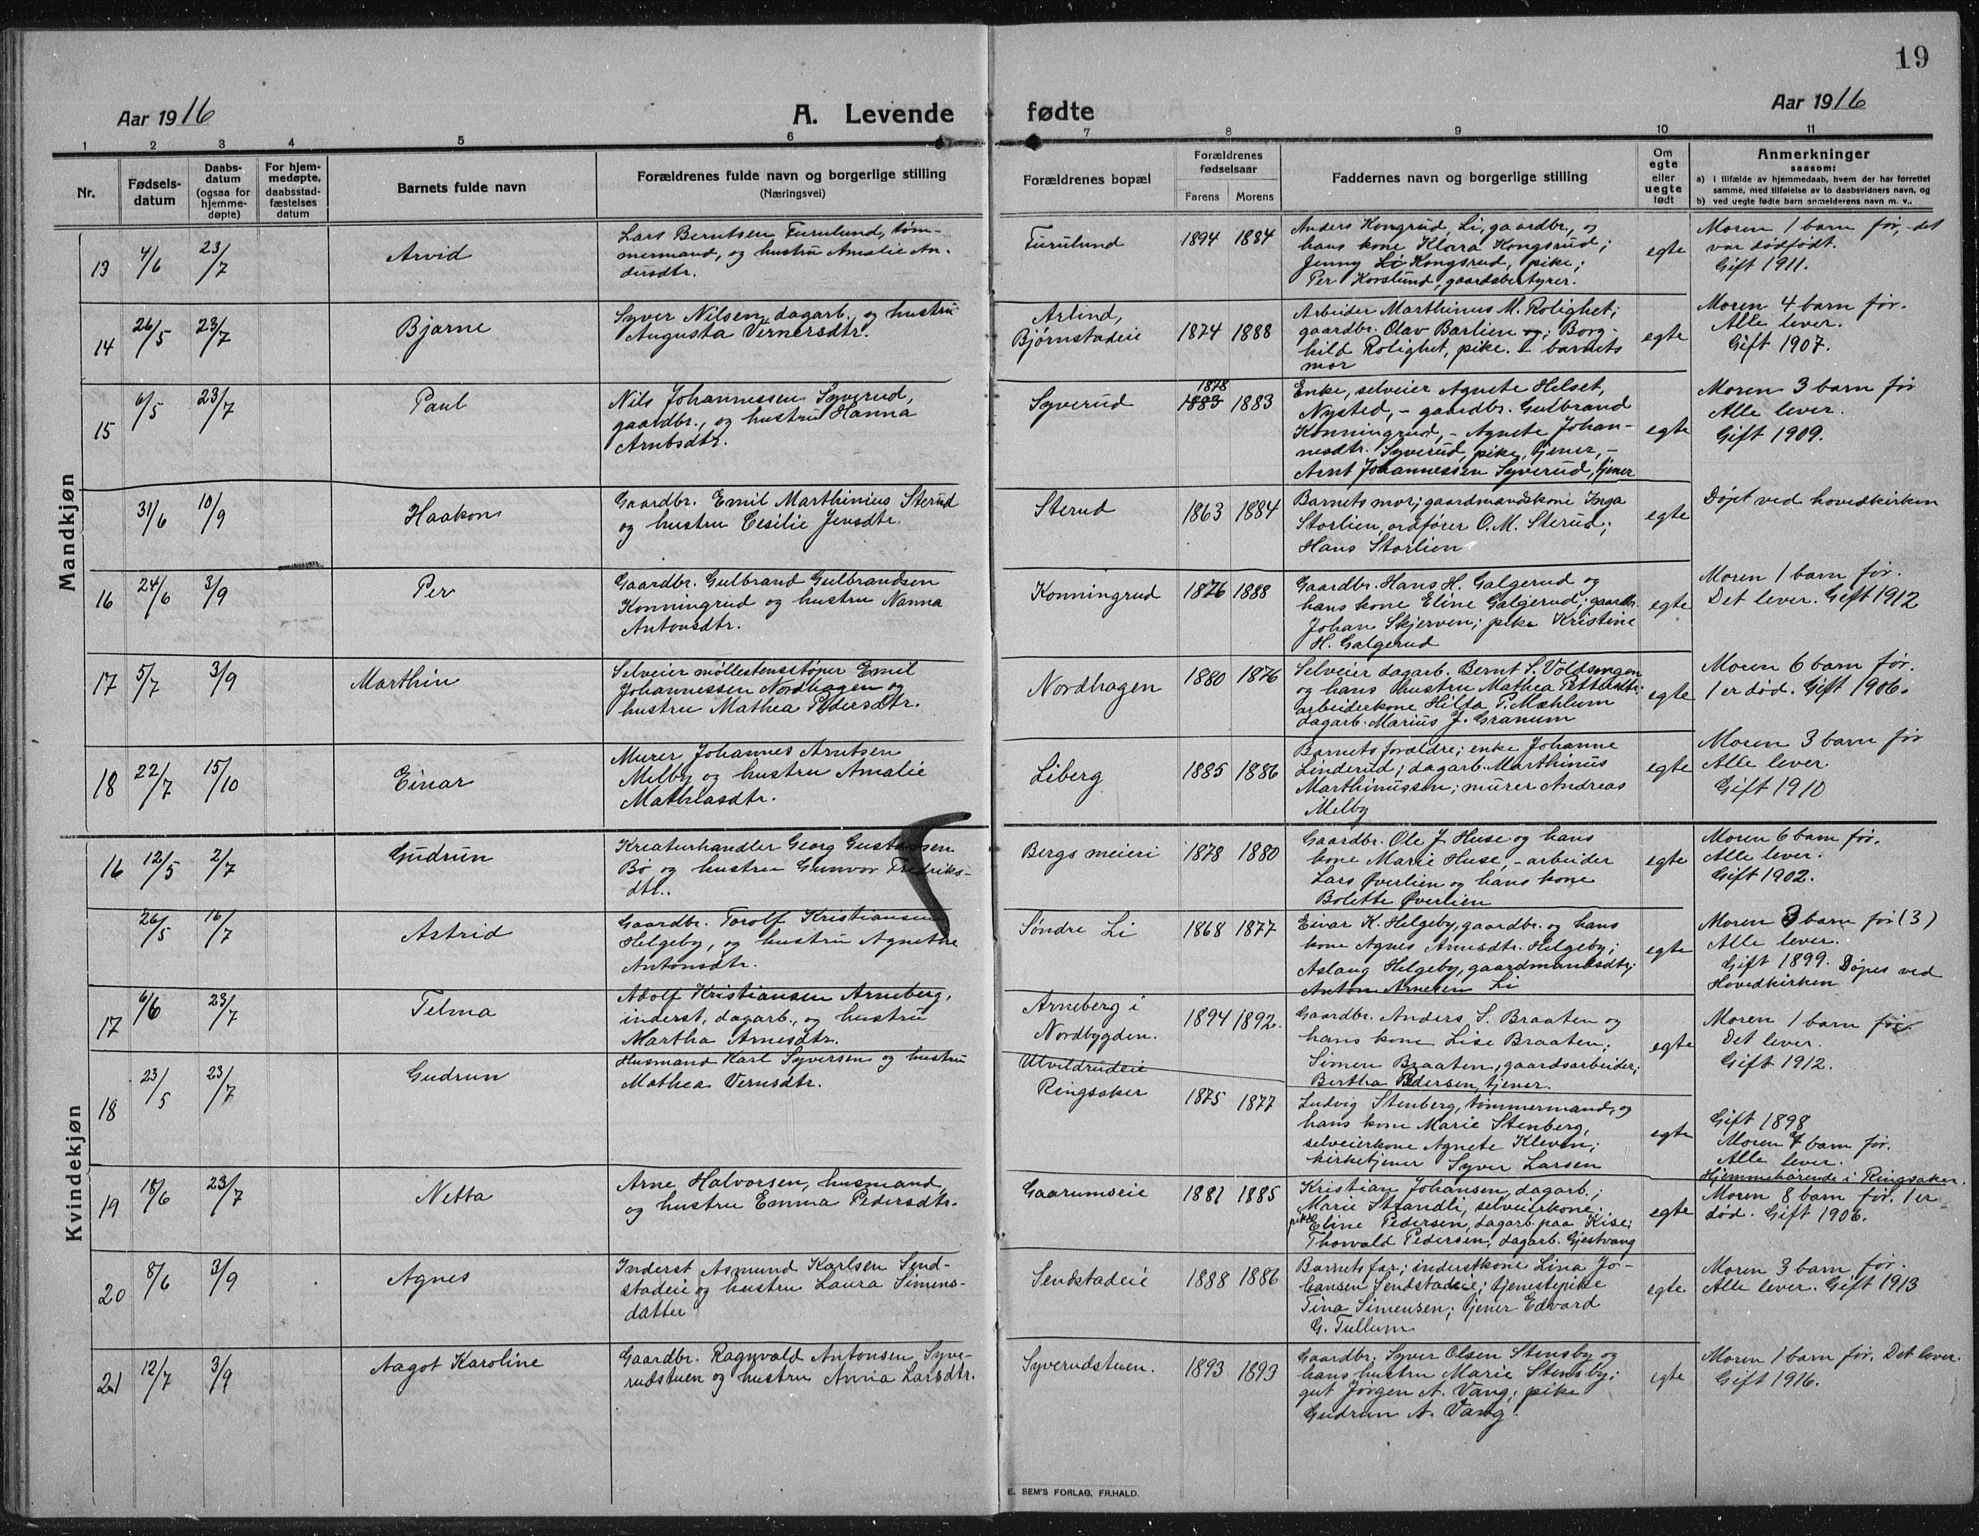 19
Aar 1916
A. Levende fødte
Aar 1916
1 2 3 4 5 6 7 8 9 10 11
Nr.
Fødsels-
datum
Daabs-
datum
(ogsaa for
hjemme-
døpte)
For hjem-
medøpte,
daabsstad-
fæstelses
datum
Barnets fulde navn
Forældrenes fulde navn og borgerlige stilling
(Næringsvei)
Forældrenes bopæl
Forældrenes
fødselsaar
Farens Morens
Faddernes navn og borgerlige stilling
Om
egte
eller
uegte
født
Anmerkninger
saasom:
a) i tilfælde av hjemmedaab, hvem der har forrettet
samme, med tilføielse av to daabsvidners navn, og
b) ved uegte fødte barn anmelderens navn m. v..
Mandkjøn
13 4/6 23/7
Arvid
Lars Berntsen Furulund, tøm-
mermand, og hustru Amalie An-
dersdtr.
Furulund
1894 1884
Anders Kongsrud, Li, gaardbr., og
hans kone Klara Kongsrud;
Jenny Li Kongsrud, pike;
Per Korslund, gaardsbestyrer.
egte
Moren 1 barn før, det
var dødfødt.
Gift 1911.
14 26/5 23/7
Bjarne
Syver Nilsen, dagarb., og hustru
Augusta Vernersdtr.
Arlind,
Bjørnstadeie
1874 1888
Arbeider Marthinus M. Rolighet;
gaardbr. Olav Barlien og; Borg-
hild Rolighet, pike. I barnets
mor
egte
Moren 4 barn før.
Alle lever.
Gift 1907.
15 6/5 23/7
Paul
Nils Johannessen Syverud,
gaardbr., og hustru Hanna
Arntsdtr.
Syverud
1878
1883 1883
Enke, selveier Agnete Helset,
Nysted, - gaardbr. Gulbrand
Konningrud, - Agnete Johan-
nesdtr. Syverud, pike, tjener, -
Arnt Johannessen Syverud, tjener
egte
Moren 3 barn før
Alle lever.
Gift 1909.
31/6 10/9
Haakon
Gaardbr. Emil Marthinius Sterud
og hustru Cesilie Jensdtr.
Sterud
1863 1884
Barnets mor; gaardmandskone Inga
Storlien, ordfører O. M. Sterud;
Hans Storlien
egte
Døpt ved hovedkirken
16 24/6 3/9
Per
Gaardbr. Gulbrand Gulbrandsen
Konningrud og hustru Nanna
Antonsdtr.
Konningrud
1876 1888
Gaardbr. Hans H. Galgerud og
hans kone Eline Galgerud; gaardbr.
Johan Skjerven; pike Kristine
H. Galgerud
egte
Moren 1 barn før.
Det lever. Gift 1912
17 5/7 3/9
Marthin
Selveier møllestensstøper Emil
Johannessen Nordhagen og
hustru Mathea Pedersdtr.
Nordhagen
1880 1876
Selveier dagarb. Bernt S. Voldsengen
og hans hustru Mathea
arbeiderkone Hilda P. Mæhlum
dagarb. Marius J. Granum
egte
Moren 6 barn før.
1 er død. Gift 1906.
18 22/7 15/10
Einar
Murer Johannes Arntsen
Melby og hustru Amalie
Mathiasdtr.
Liberg
1885 1886
Barnets forældre; enke Johanne
Linderud; dagarb. Marthinus
Marthinussen; murer Andreas
Melby
egte
Moren 3 barn før
Alle lever.
Gift 1910
Kvindekjøn
16 12/5 2/7
Gudrun
Kreaturhandler Georg Gustavsen
Bø og hustru Gunvor Fredriks-
dtr.
Bergs meieri
1878 1880
Gaardbr. Ole J. Huse og hans
kone Marie Huse, - arbeider
Lars Øverlien og hans kone
Bolette Øverlien
egte
Moren 6 barn før.
Alle lever.
Gift 1902.
26/5 16/7
Astrid
Gaardbr. Torolf Kristiansen
Helgeby, og hustru Agnethe
Antonsdtr.
Søndre Li
1868 1877
Einar K. Helgeby, gaardbr. og hans
kone Agnes Arnesdtr. Helgeby;
Aslaug Helgeby, gaardmandsdtr;
Anton Arnesen Li
egte
Moren 3 barn før (3)
Alle lever.
Gift 1899. Døpes ved
Hovedkirken
17 6/6 23/7
Telma
Adolf Kristiansen Arneberg,
inderst, dagarb., og hustru
Martha Arnesdtr.
Arneberg i
Nordbygden.
1894 1892.
Gaardbr. Anders S. Braaten og
hans kone Lise Braaten;
Simen Braaten, gaardsarbeider;
Bertha Pedersen, tjener.
egte
Moren 1 barn før.
Det lever.
Gift 1912.
18 23/5 23/7
Gudrun
Husmand Karl Syversen og hustru
Mathea Vernsdtr.
Utvildrudeie
Ringsaker
1875 1877
Ludvig Stenberg, tømmermand, og
hans kone Marie Stenberg,
selveierkone Agnete Kleven;
kirketjener Syver Larsen
egte
Gift 1898
Moren 7 barn før.
Alle lever.
Hjemmehørende i Ringsaker.
19 18/6 23/7
Netta
Arne Halvorsen, husmand,
og hustru Emma Pedersdtr.
Gaarumseie
1881 1885
Kristian Johansen, dagarb.;
Marie Strandli, selveierkone;
pike Eline Pedersen, dagarb. paa Kise;
Thorvald Pedersen, dagarb. Gjestvang
egte
Moren 8 barn før. 1 er
død. Gift 1906.
20 8/6 3/9
Agnes
Inderst Asmund Karlsen Send-
stadeie og hustru Laura Simens-
datter
Sendstadeie
1888 1886
Barnets far; inderstkone Lina Jo-
hansen Sendstadeie; tjenestepike
Tina Simensen; tjener Edvard
G. Tullum
egte
Moren 3 barn før.
Alle lever. Gift 1913
21 12/7 3/9
Aagot Karoline
Gaardbr. Ragnvald Antonsen Syve-
rudstuen og hustru Anna Larsdtr.
Syverudstuen.
1893 1893
Gaardbr. Syver Olsen Stensby og
hans hustru Marie Stensby;
gut Jørgen A. Vang; pike
Gudrun A. Vang.
egte
Moren 1 barn før. Det lever.
Gift 1916.
E. SEM'S FORLAG, FR.HALD.